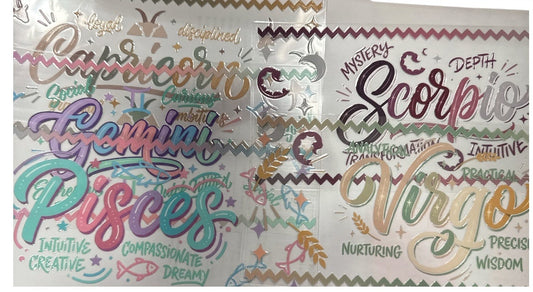 loyal disciplined
Capricorn
Social Curious
Gemini
Pisces
INTUITIVE
CREATIVE
COMPASSIONATE
DREAMY
MYSTERY
DEPTH
Scorpio
INTUITIVE
TRANSFORMATION
ANALYTICAL
PRACTICAL
Virgo
NURTURING
WISDOM